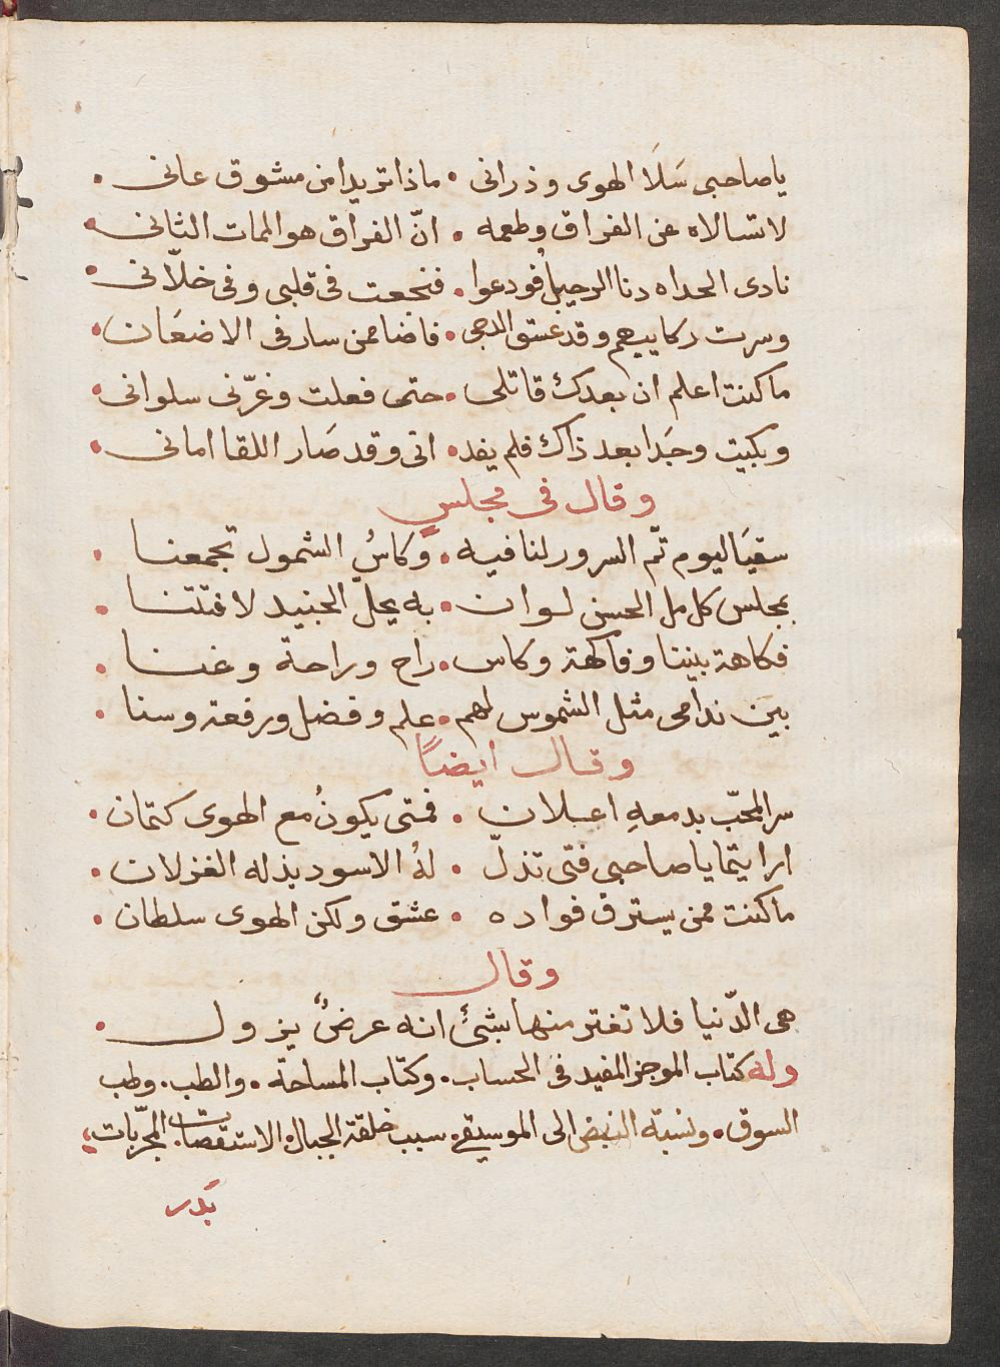 ياصاحبى سَلَا الهوى وذرانى • ماذا تريدا من مشوق عانى •
لا تسالاه عن الفراق وطعمه • انّ الفراق هو الممات الثانى •
نادى الحداه دنا الرحيل فودعوا • فنجعت فى قلبى وفى خلّانى •
وسرت ركاييبهم وقد عسق الدجى • فاضا ممن سار فى الاضعَان •
ما كنت اعلم ان بعدك قاتلى • حتى فعلت وغرّنى سلوانى •
وبكيت وجَدا بعد ذاك فلم يفد • انى وقد صَار اللقا امانى •
وقال فى مجلسٍ
سقيَا ليوم تمّ السرور لنا فيه • وكاسُ الشمول تجمعنا •
بمجلس كل مل الحسن لو ان • به يحلّ الجنيد لافتتنا •
فكاهة بيننا وفاكهة وكاس • راح وراحة وغنا •
بين ندامى مثل الشموس لهم • علم وفضل ورفعة وسنا •
وقال ايضاً
سر المحبّ بدمعهِ اعلان • فمتى يكونُ مع الهوى كتمان •
ارايتما ياصاحبى فتى تذلّ • لهُ الاسود بذله الغزلان •
ما كنت ممن يسترق فواده • عشق ولكن الهوى سلطان •
وقال
هى الدّنيا فلا تغتر منها بشئ انه عرضٌ يزول •
وله كتاب الموجز المفيد فى الحساب • وكتاب المساحة • والطب • وطب
السوق • ونسبة النبض الى الموسيقى • سبب خلقة الجبال • الاستقصات • المجرّبات •
بَدر